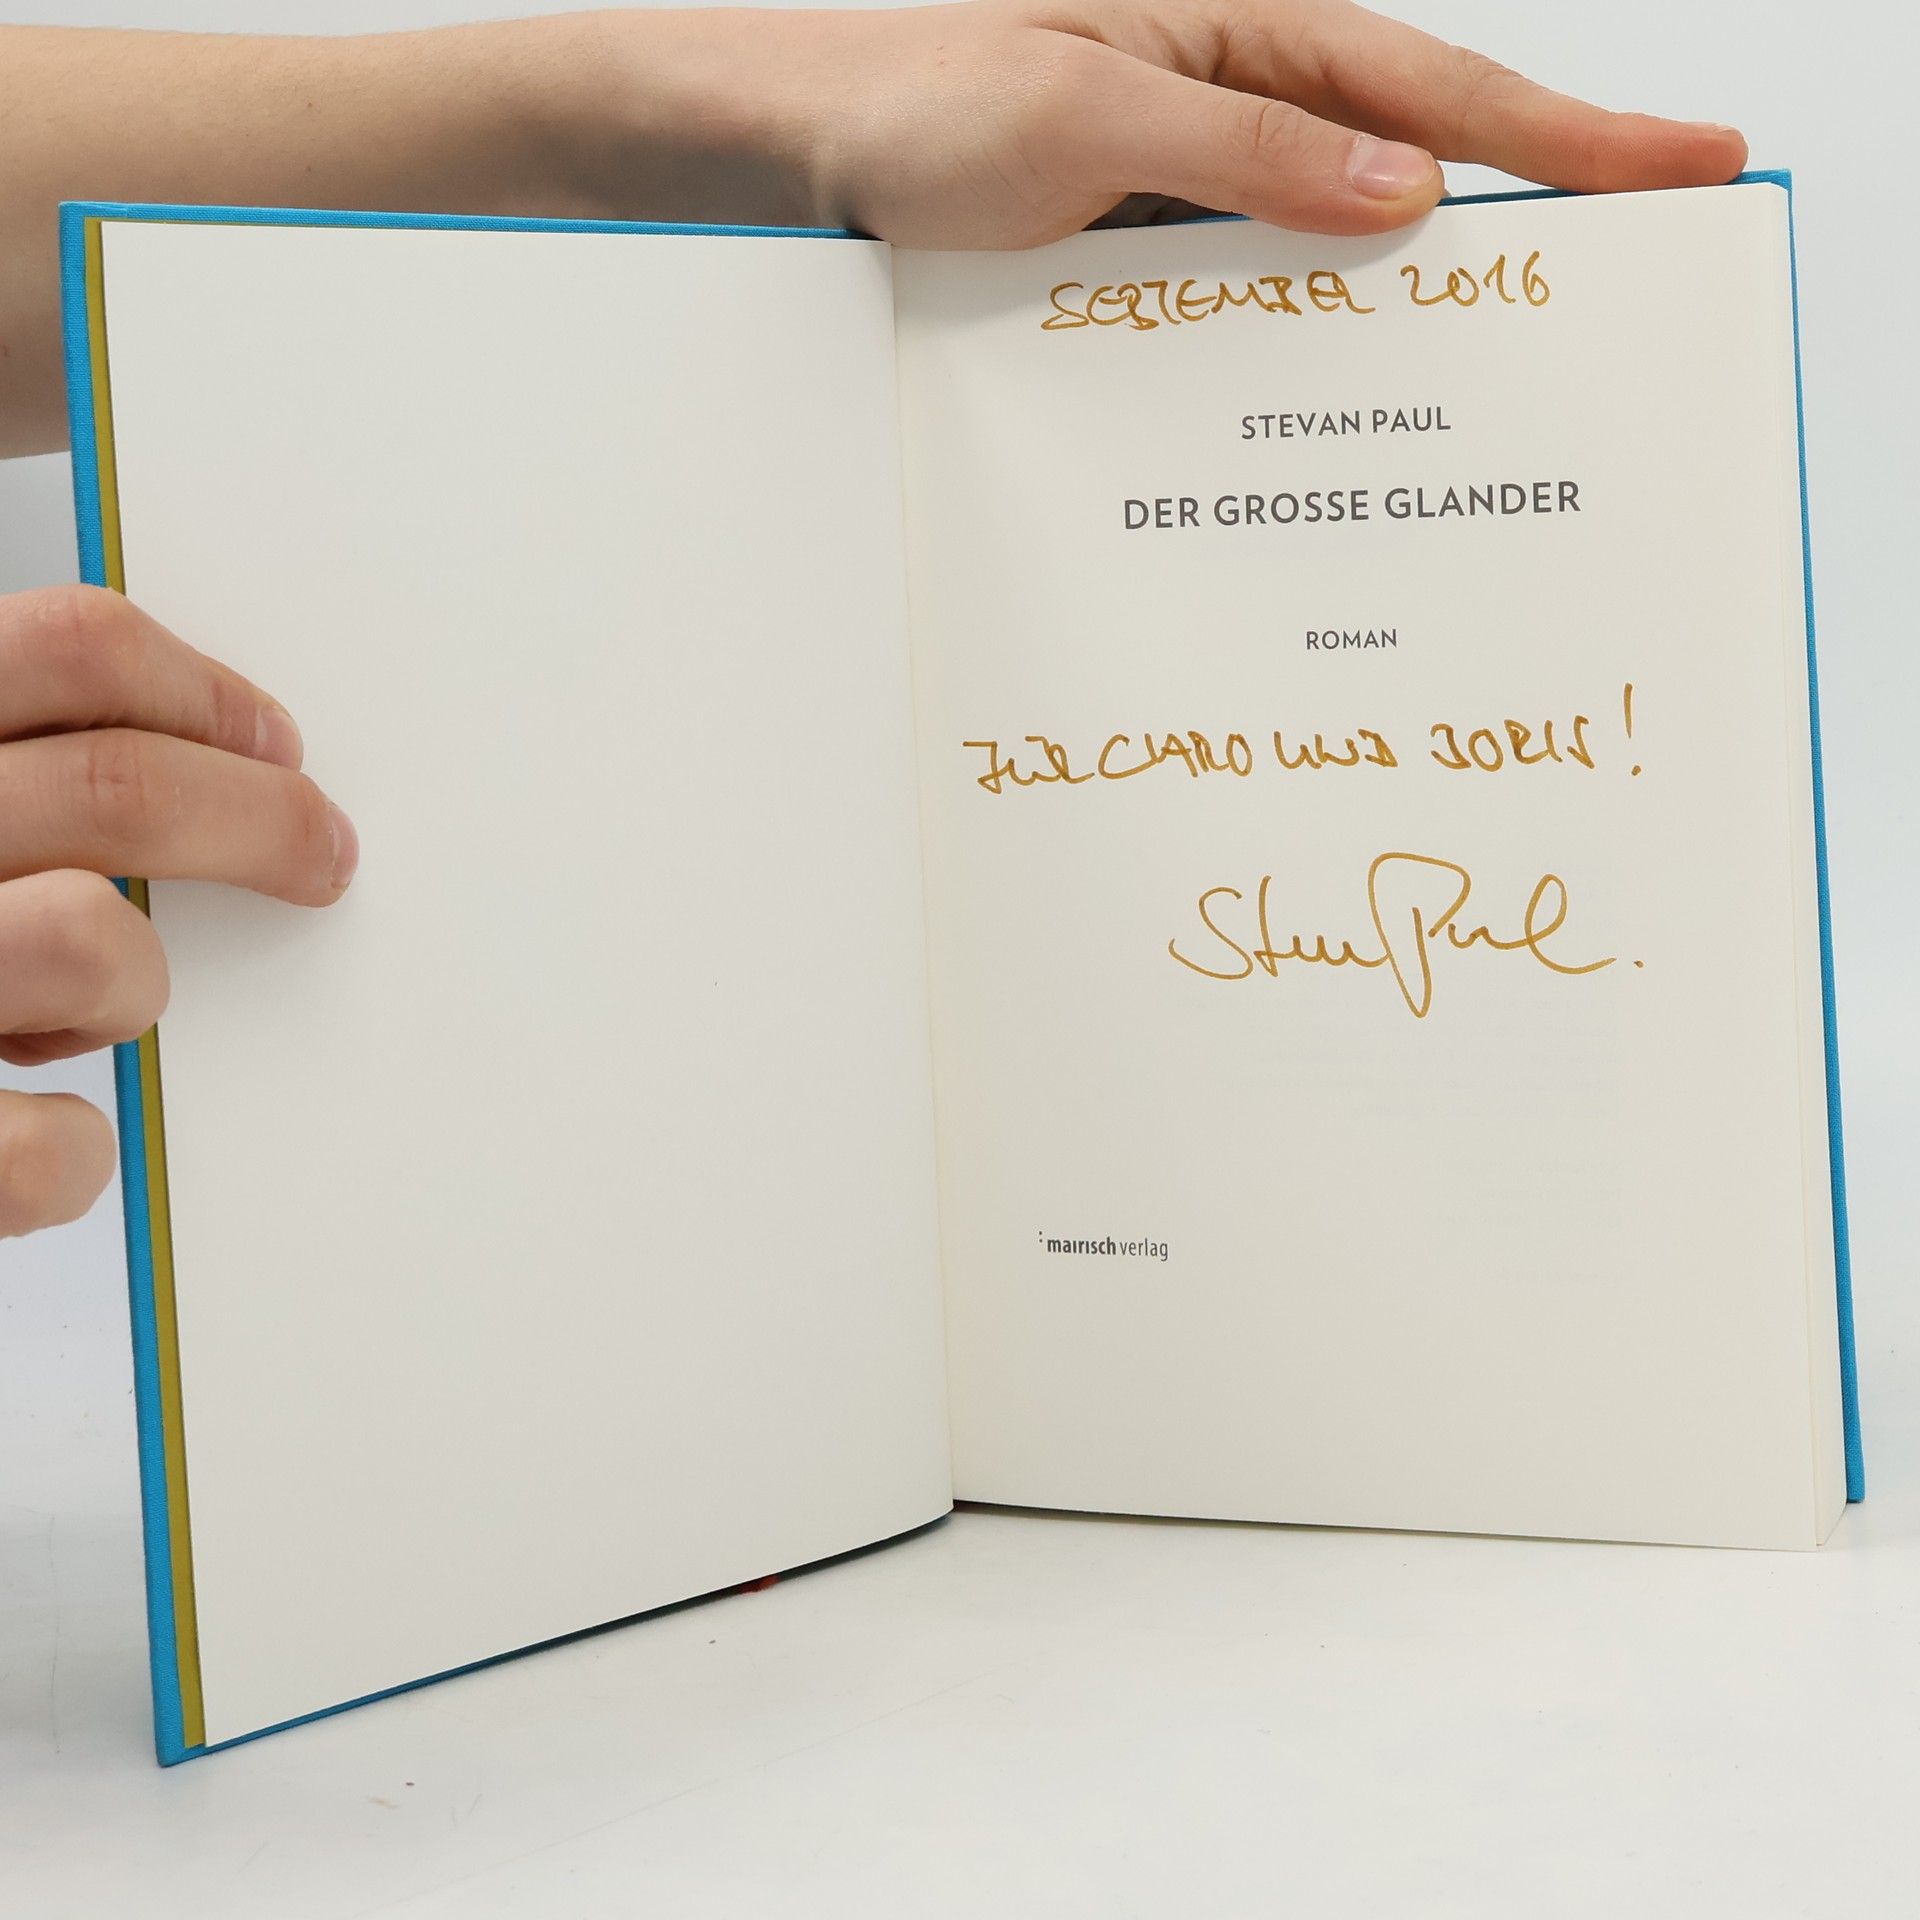 SEPTEMBER 2016
STEVAN PAUL
DER GROSSE GLANDER
ROMAN
FÜR CLARO UND DORIS!
Stevan Paul.
mairisch verlag